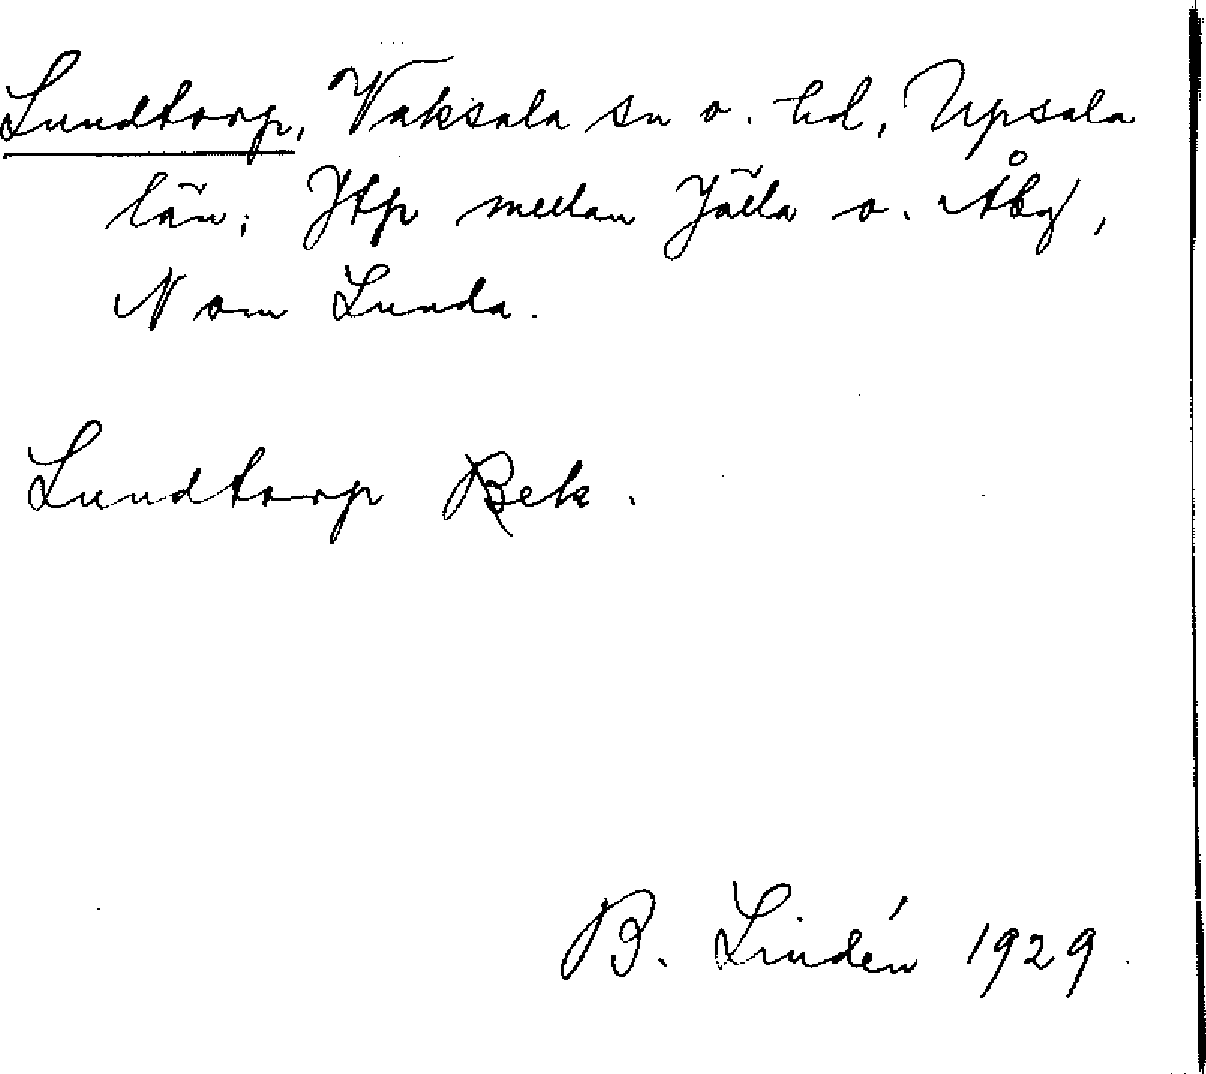 Lundtorp, Vaksala sn o. hd, Upsala
län; Jtp mellan Jälla o. Åby,
N om Lunda.
Lundtorp Bek.
B. Lindén 1929.